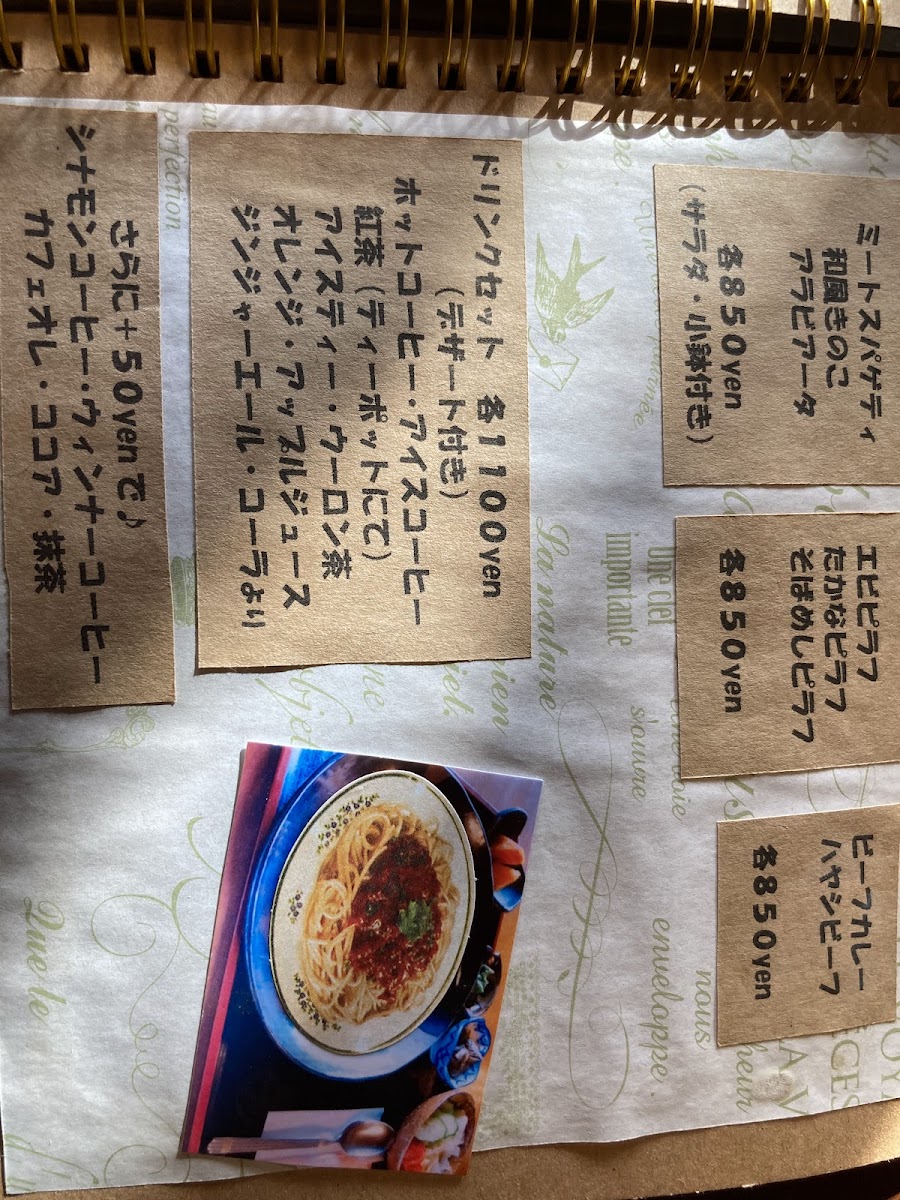 ミートスパゲティ
和風きのこ
アラビアータ
各850yen
(サラダ・小鉢付き)
エビピラフ
たかなピラフ
そばめしピラフ
各850yen
ビーフカレー
ハヤシビーフ
各850yen
ドリンクセット 各1100yen
(デザート付き)
ホットコーヒー・アイスコーヒー
紅茶(ティーポットにて)
アイスティー・ウーロン茶
オレンジ・アップルジュース
ジンジャーエール・コーラより
さらに+50yenで♪
シナモンコーヒー・ウィンナーコーヒー
カフェオレ・ココア・抹茶
perfection
La nature
Une clef
importante
s'ouvre
enveloppe.
nous
Que le